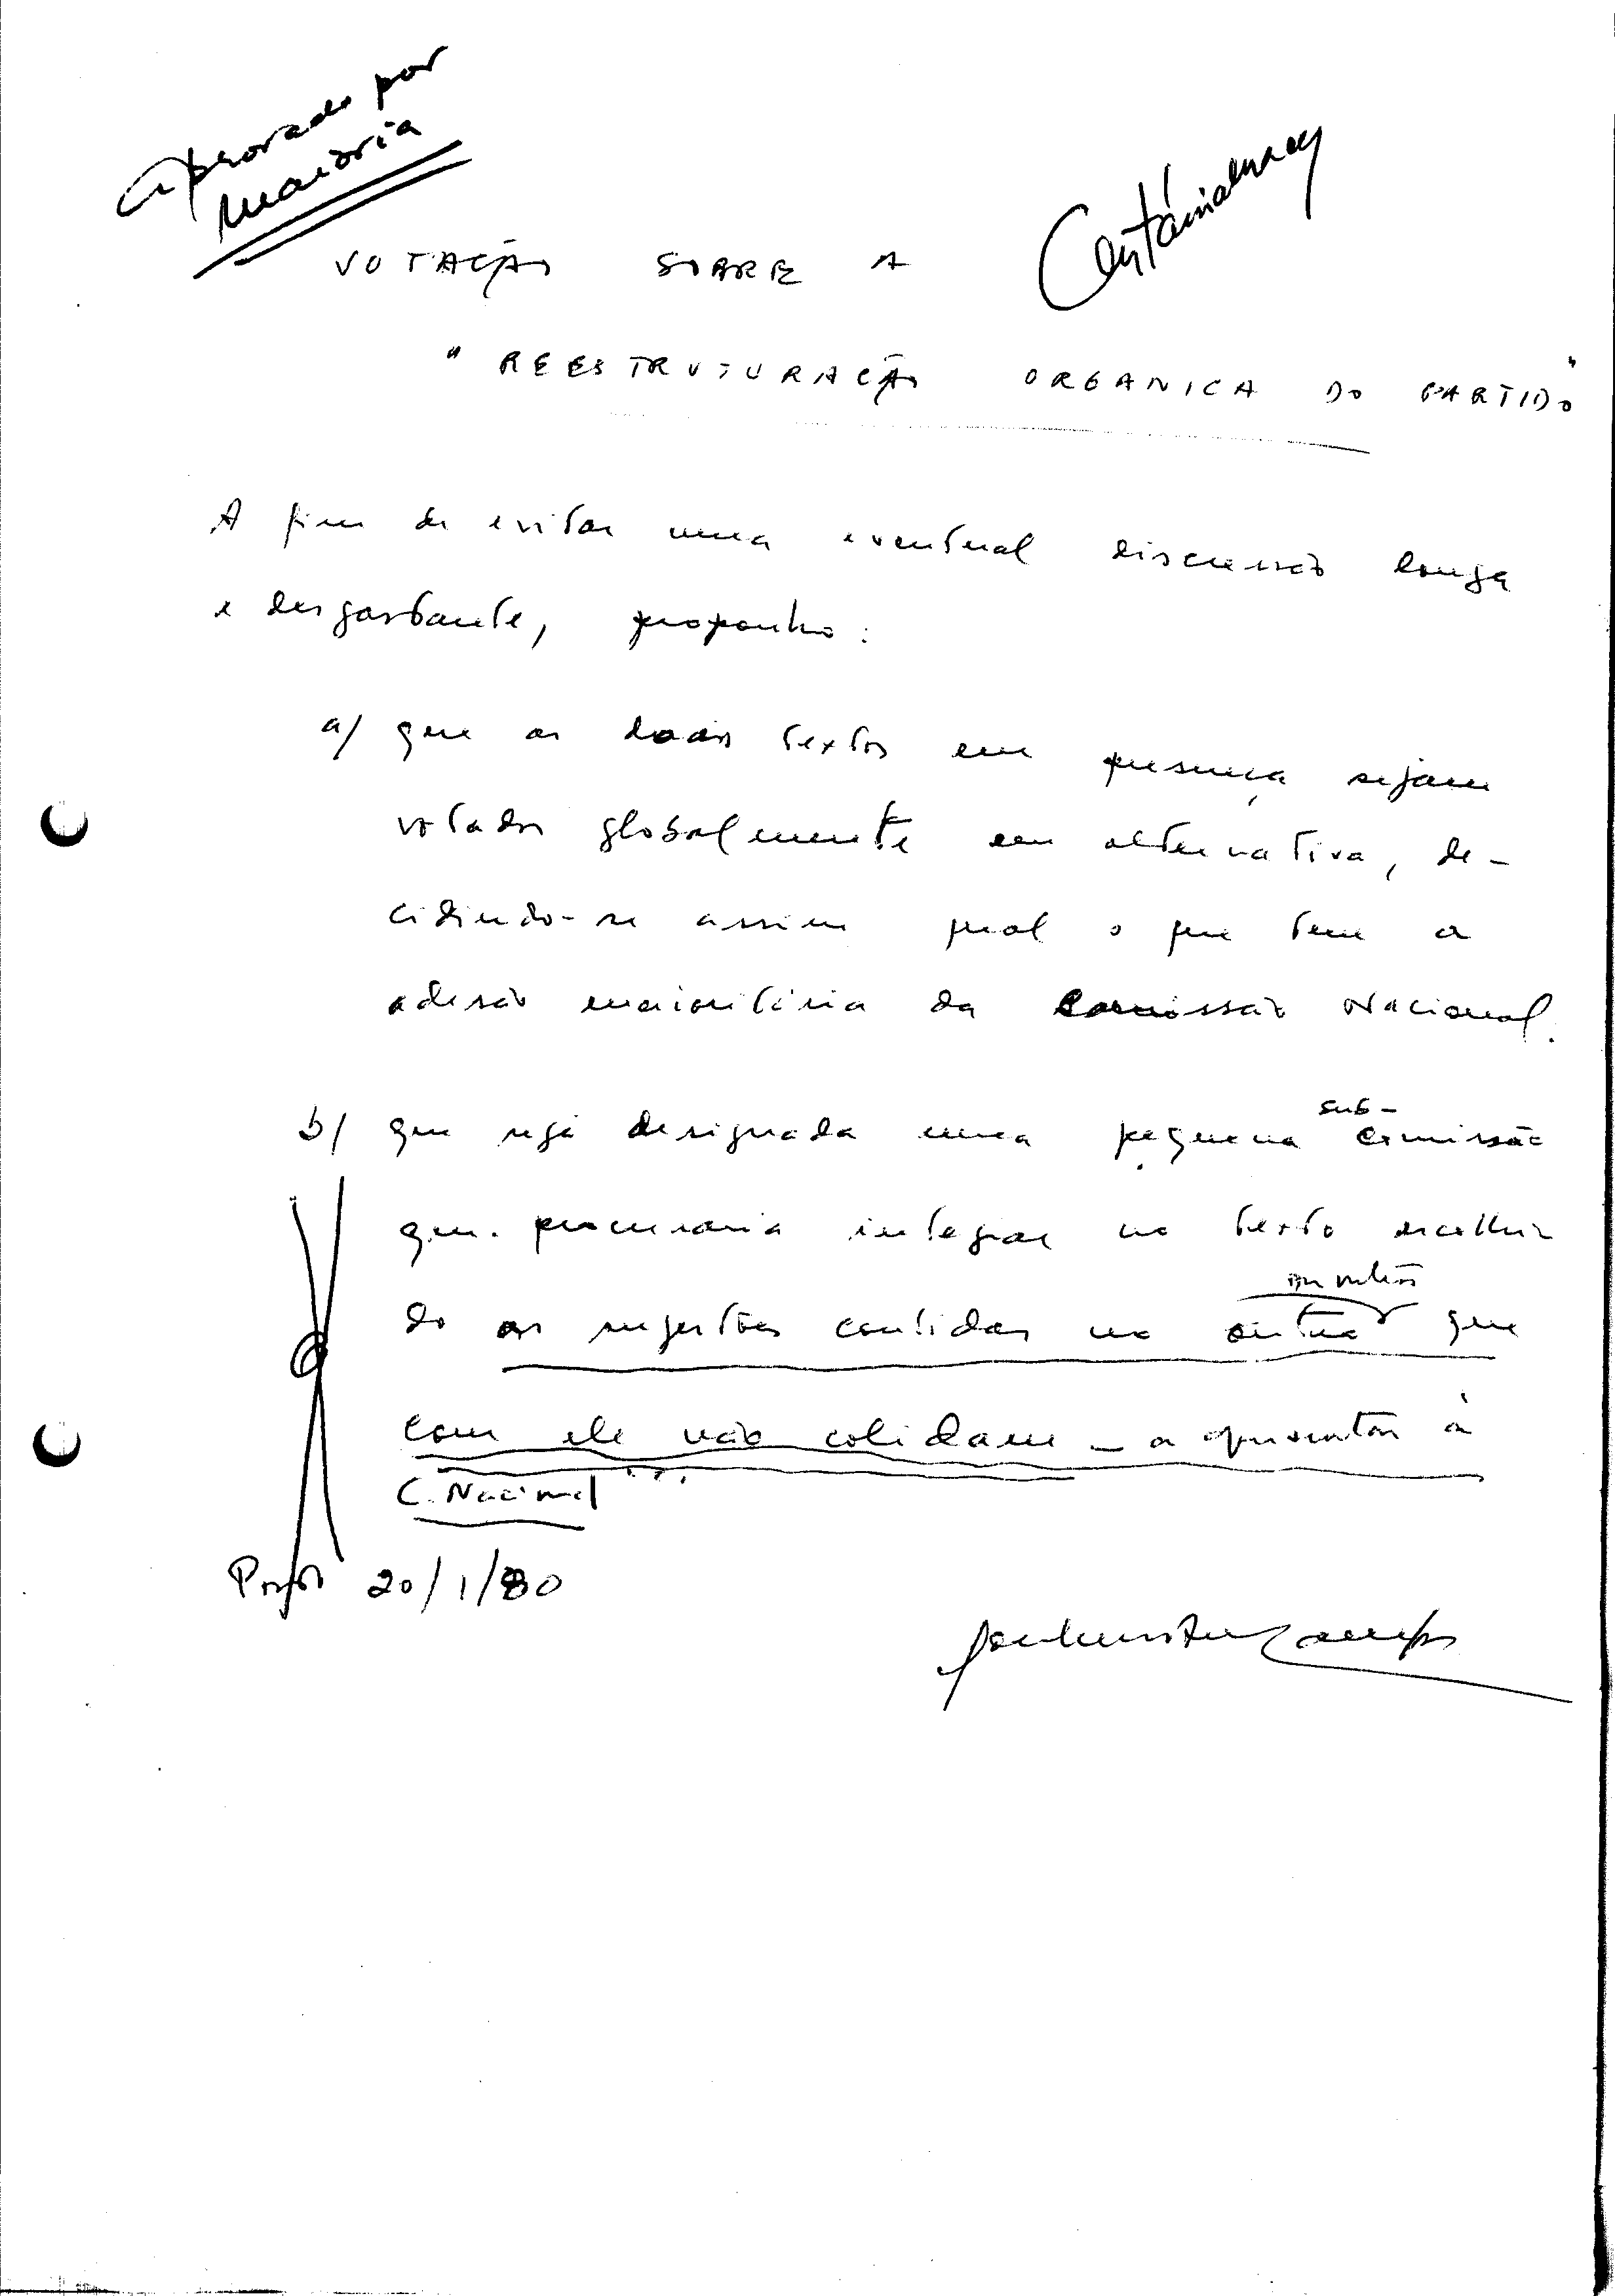 aprovado por
maioria
VOTAÇÃO SOBRE A
"REESTRUTURAÇÃO ORGANICA DO PARTIDO"
A fim de evitar uma eventual discussão longa
e desgastante, proponho:
a) que os dois textos em presença sejam
votados globalmente em alternativa, de-
cidindo-se assim qual o que tem a
adesão maioritária da Comissão Nacional.
b) que seja designada uma pequena sub-comissão
que procuraria integrar no texto escolhi
do as sugestões contidas no outro que
com ele não colidam - a apresentar à
C. Nacional
Porto 20/1/80